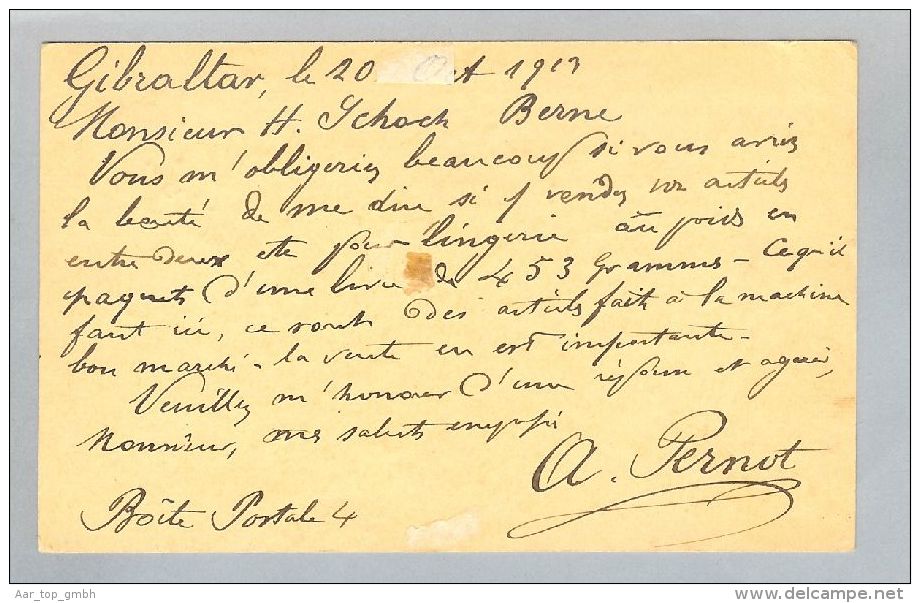 Gibraltar, le 20 Oct 1913
Monsieur H. Schoch Berne
Vous m'obligeriez beaucoup si vous auriez
la bonté de me dire si vendez vos articles
entre deux etc pour lingerie au poids en
paquets d'une livre de 453 Grammes - Ce qu'il
faut ici, ce sont des articles fait à la machine
bon marché - la vente en est importante -
Veuillez m'honorer d'une réponse et agréer,
Monsieur, mes saluts empressés
A. Pernot
Boîte Postale 4
Aar_top_gmbh
www.delcampe.net